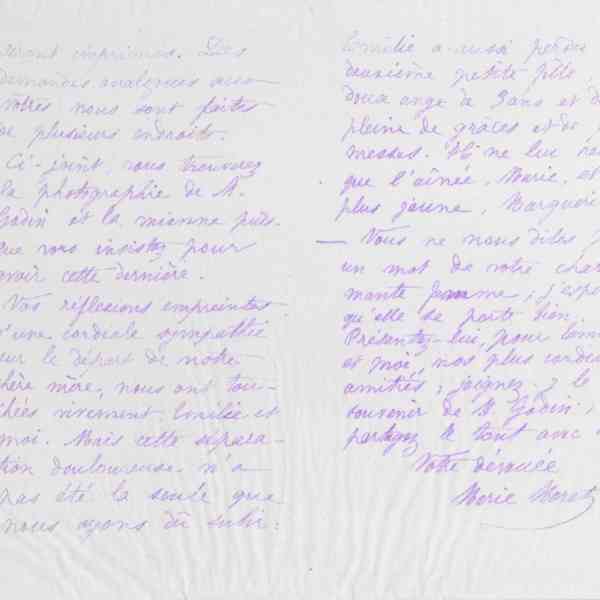 seront imprimés. Des
demandes analogues aux
vôtres nous sont faites
de plusieurs endroits.
Ci-joint, vous trouverez
la photographie de M.
Godin et la mienne puis-
que vous insistez pour
avoir cette dernière.
Vos réflexions empreintes
d'une cordiale sympathie
sur le départ de notre
chère mère, nous ont tou-
chées vivement Emilie et
moi. Mais cette sépara-
tion douloureuse n'a
pas été la seule que
nous ayons dû subir:
Emilie a aussi perdu
deuxième petite fille,
doux ange de 3 ans et
pleine de grâces et de
messes. Il ne lui
que l'aînée, Marie, et
plus jeune,
— Vous ne nous dites
un mot de votre char
mante femme; j'esp
qu'elle se porte bien.
Présentez-lui, pour
et moi, nos plus
amitiés; joignez-y le
souvenir de M. Godin,
partagez le tout avec
Votre dévouée
Marie Moret